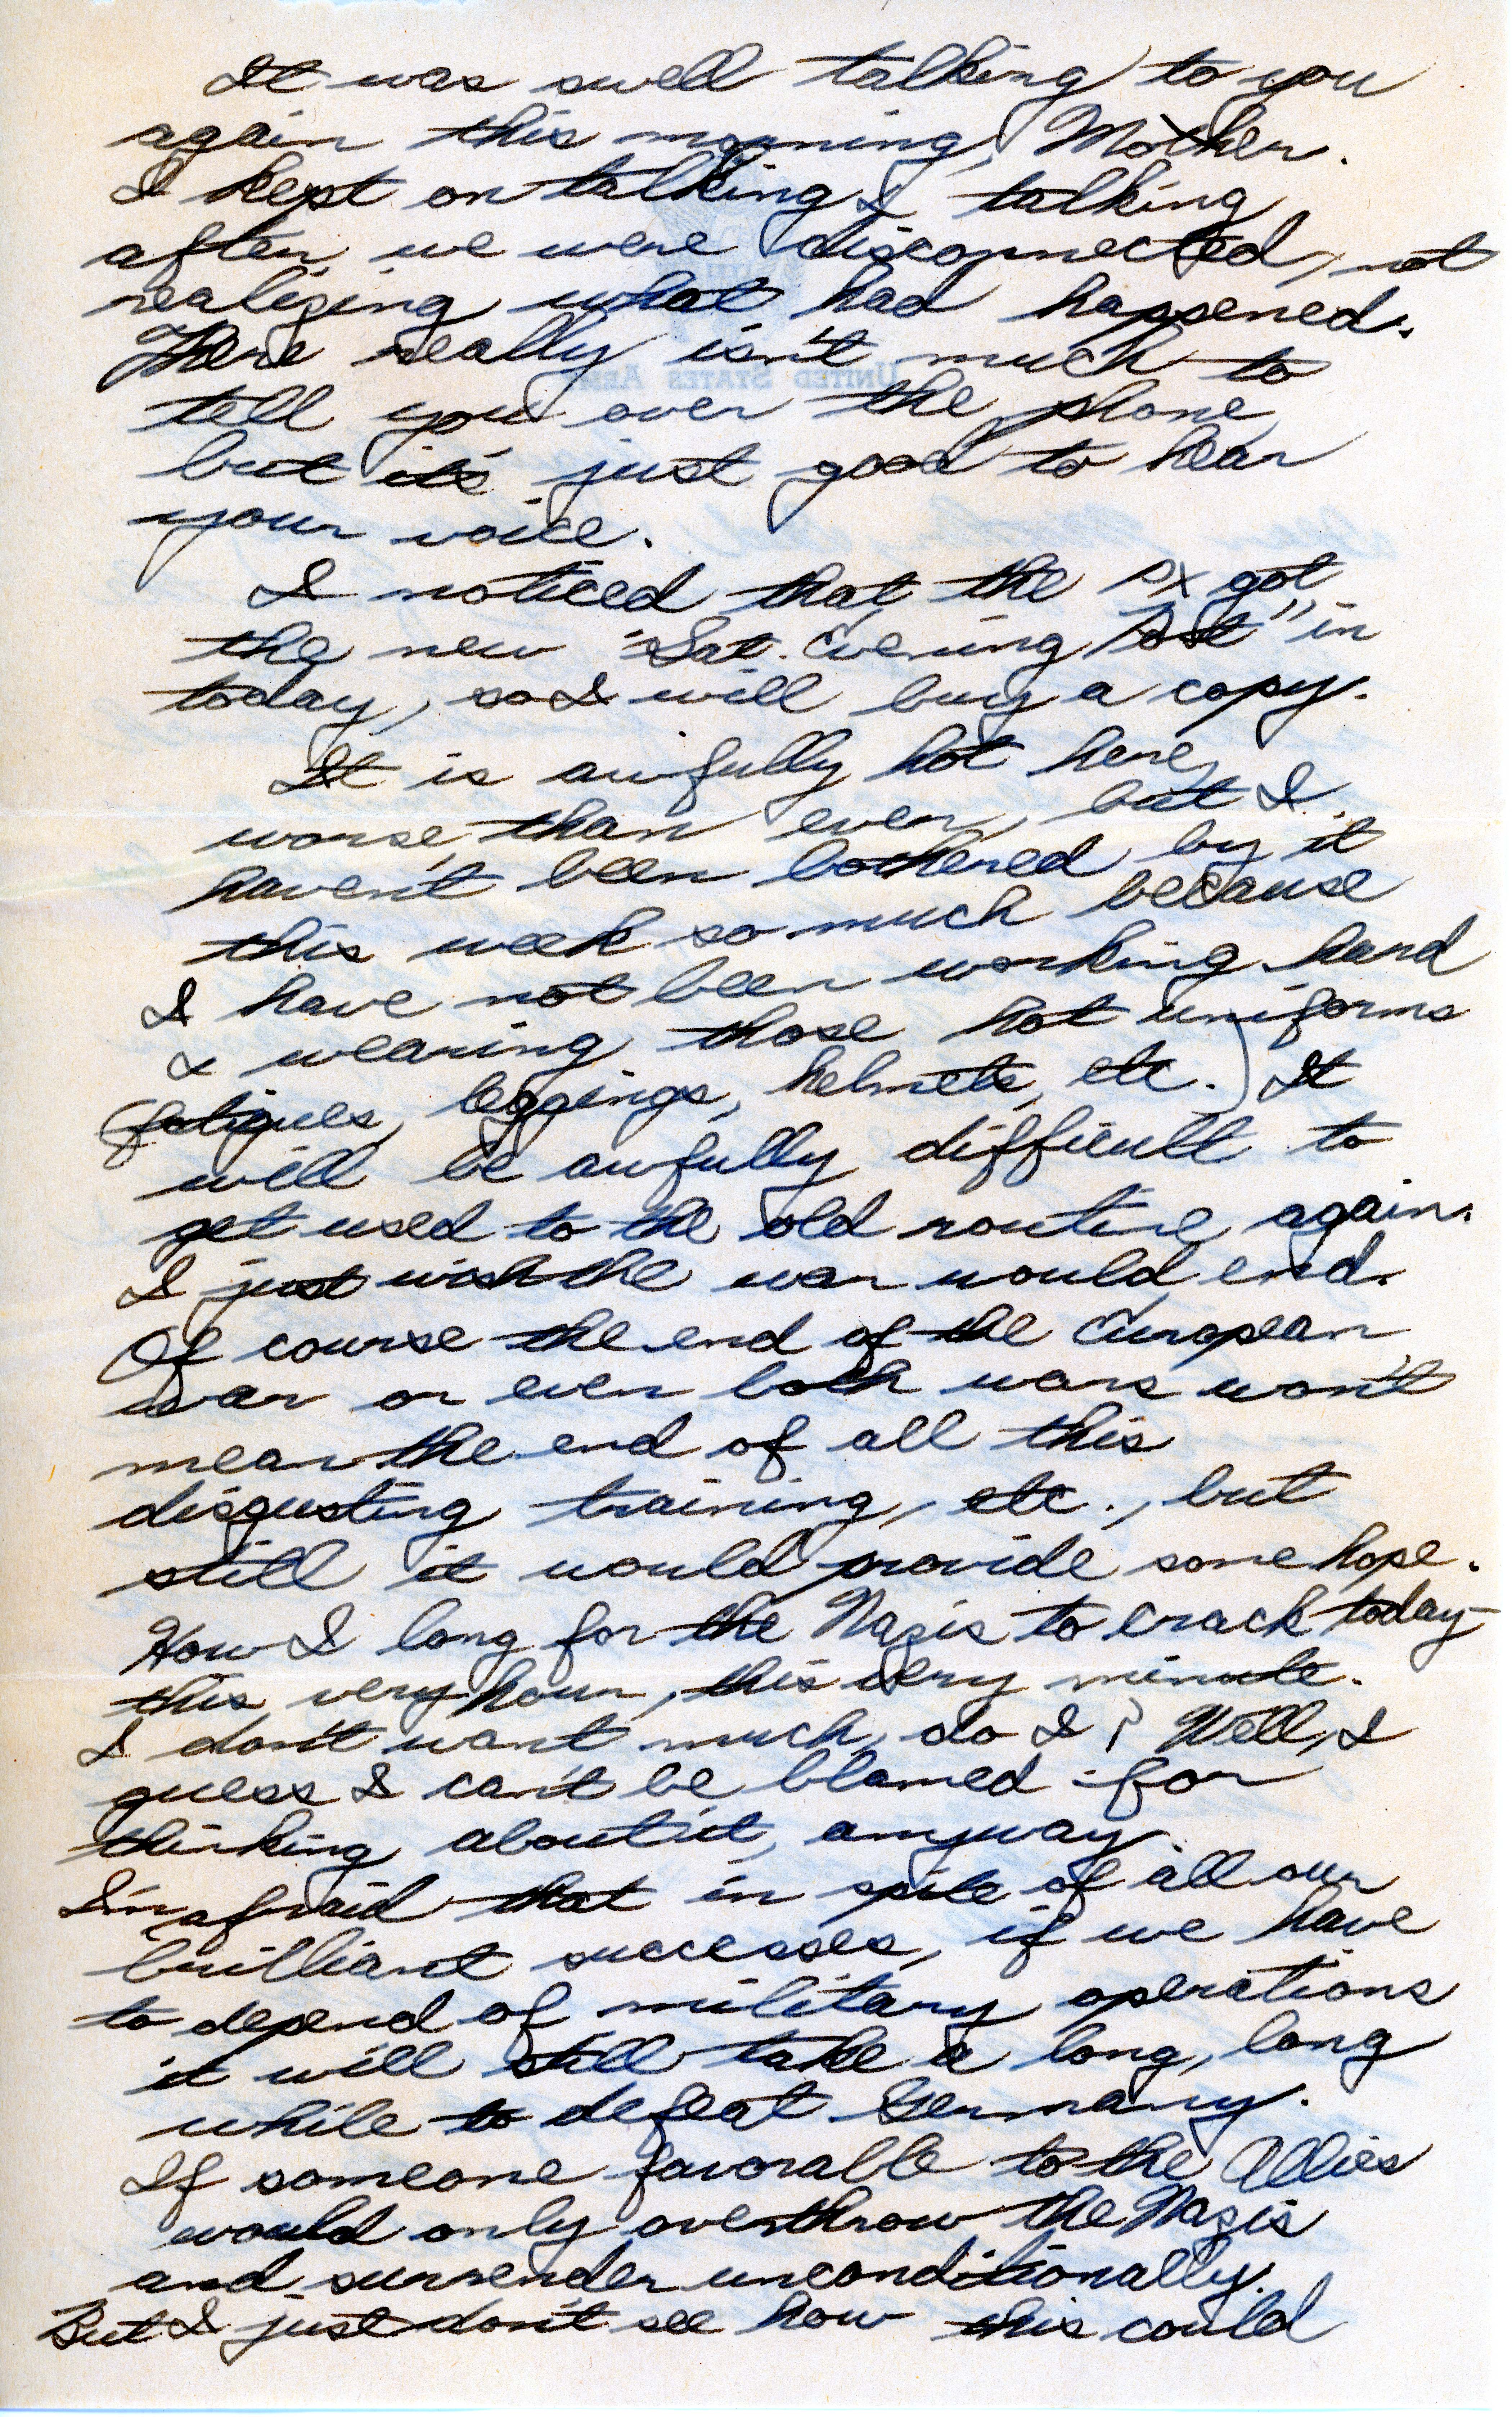 It was swell talking to you
again this morning, Mother.
I kept on talking & talking
after we were disconnected, not
realizing what had happened.
There really isn't much to
tell you over the phone,
but it's just good to hear
your voice.
I noticed that the PX got
the new "Sat. Evening Post" in
today, so I will buy a copy.
It is awfully hot here,
worse than ever, but I
haven't been bothered by it
this week so much because
I have not been working hard
& wearing those hot uniforms
(fatigues, leggings, helmets, etc.) It
will be awfully difficult to
get used to the old routine again.
I just wish the war would end.
Of course the end of the European
war or even both wars won't
mean the end of all this
disgusting training, etc., but
still it would provide some hope.
How I long for the Nazis to crack today-
this very hour, this very minute.
I don't want much, do I? Well, I
guess I can't be blamed for
thinking about it, anyway.
I'm afraid that in spite of all our
brilliant successes, if we have
to depend of military operations
it will still take a long, long
while to defeat Germany.
If someone favorable to the Allies
would only overthrow the Nazis
and surrender unconditionally.
But I just don't see how this could
UNITED STATES ARMY